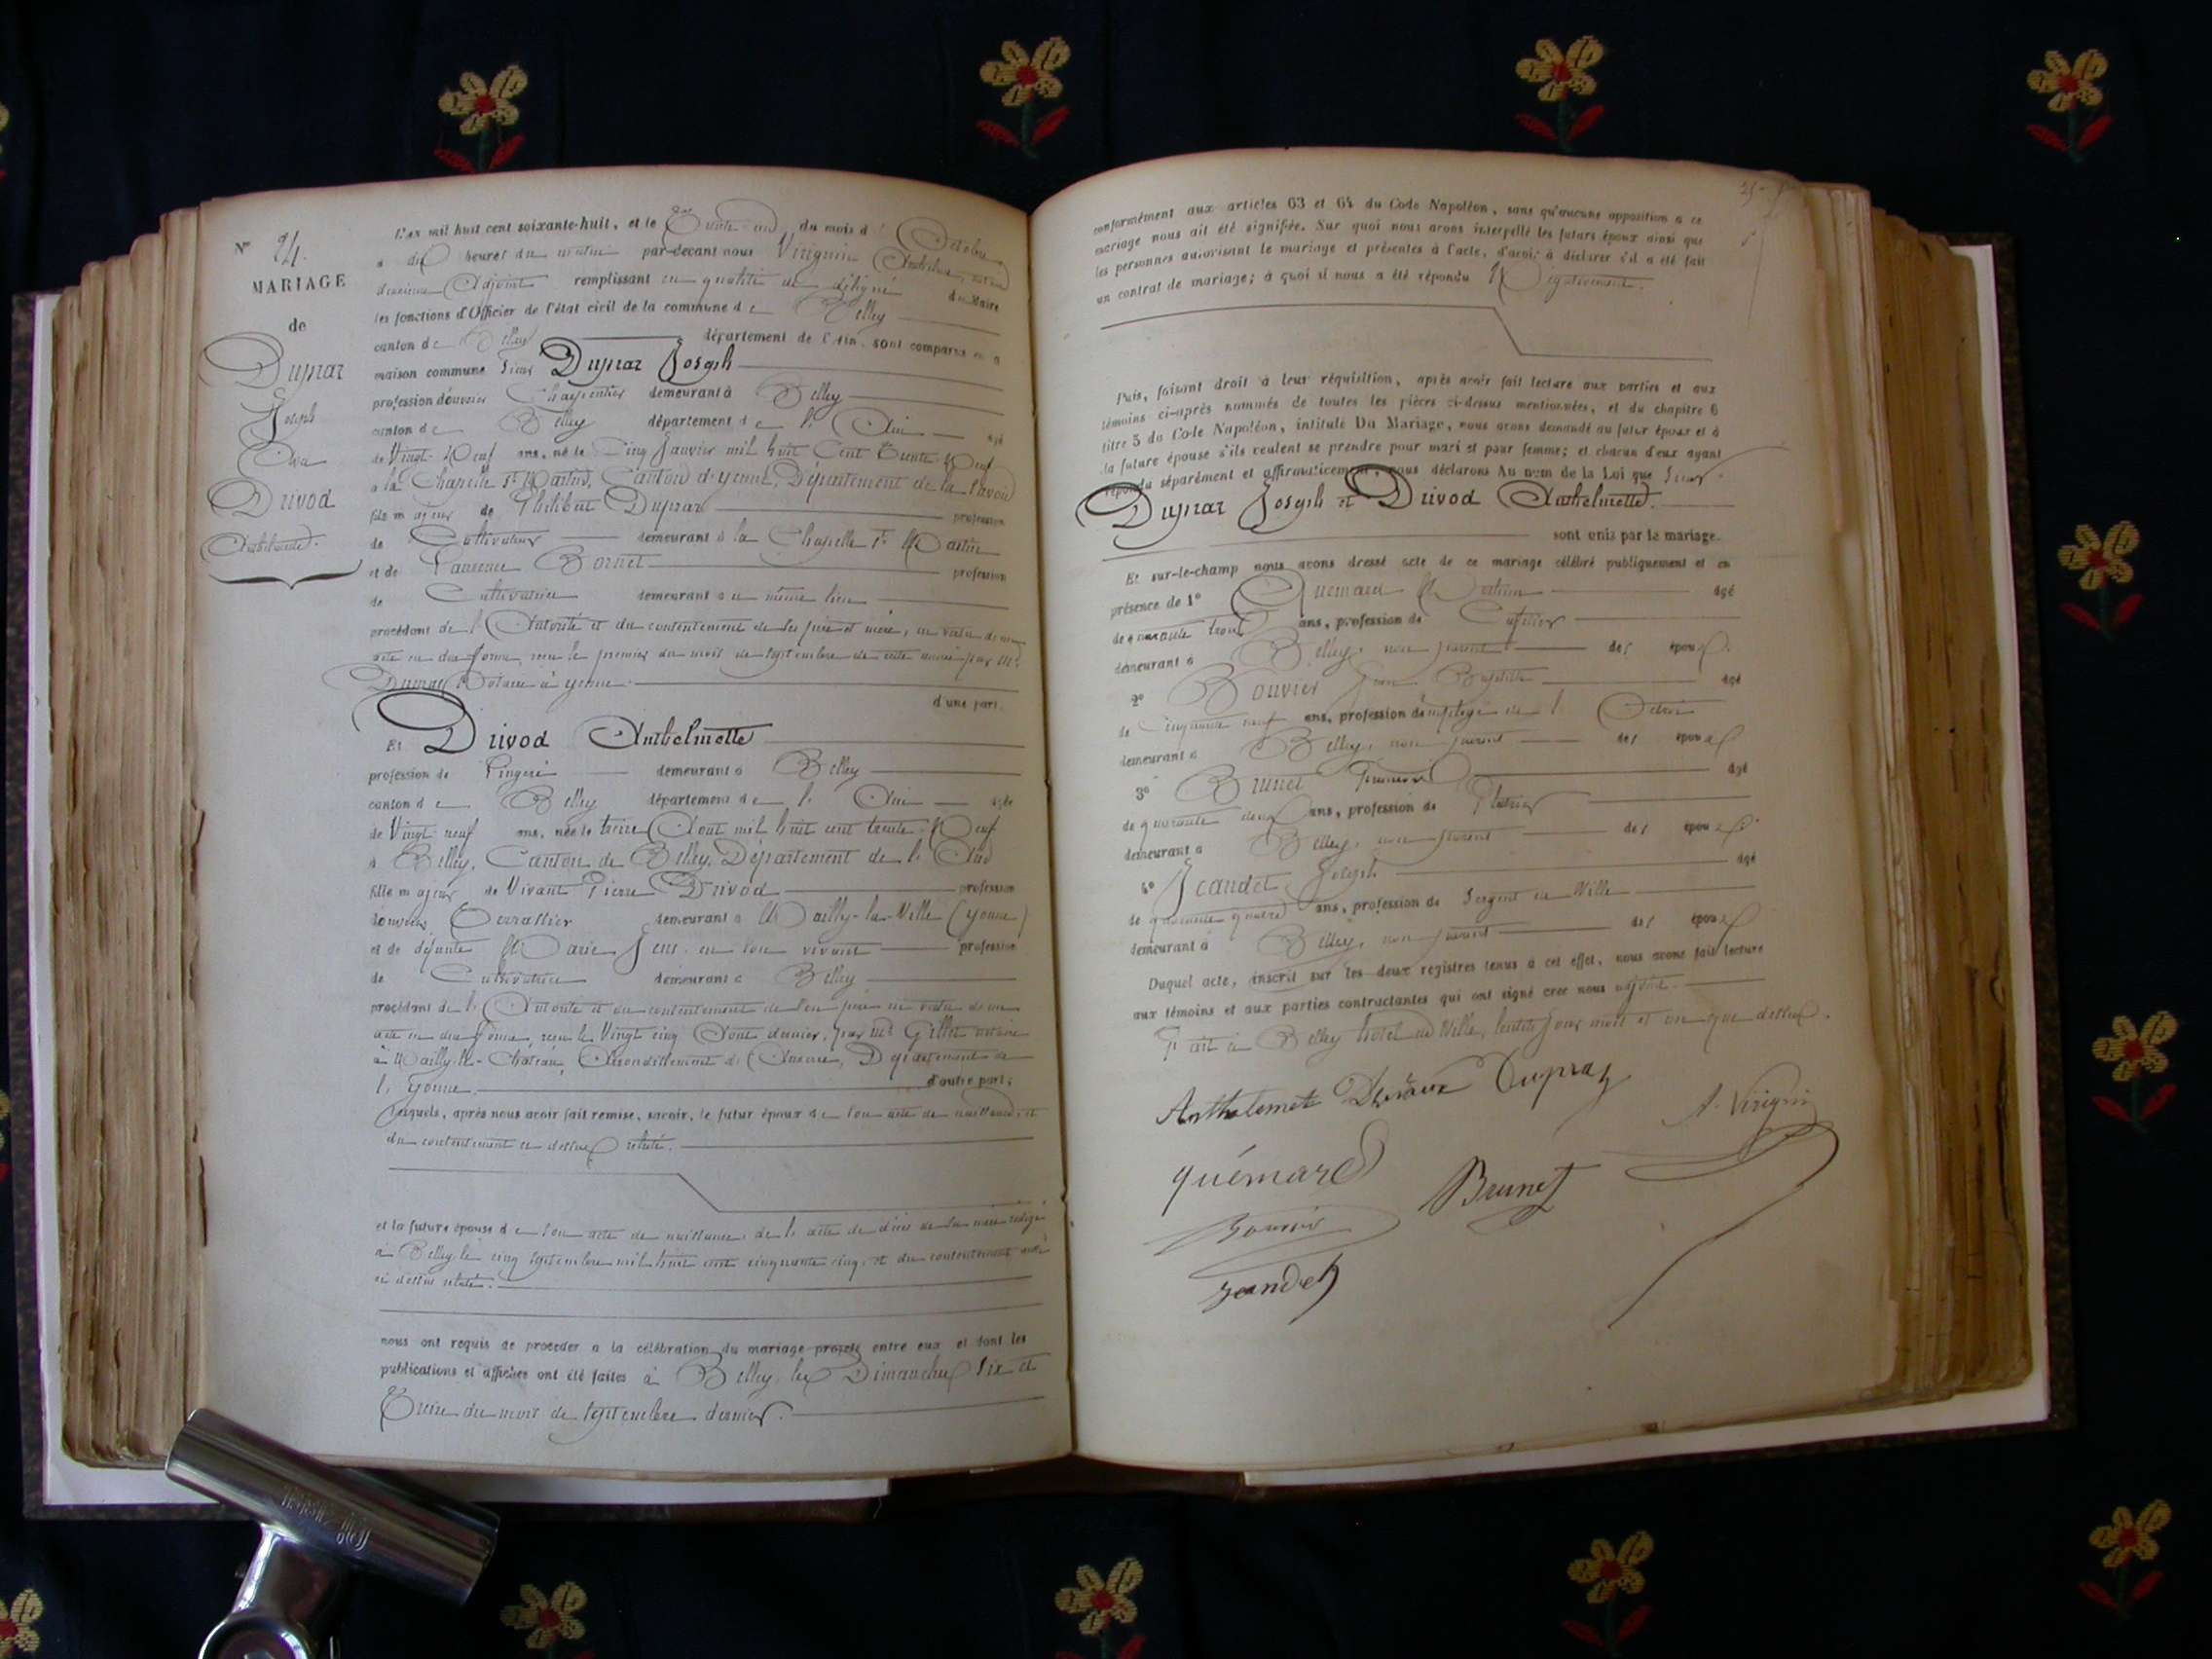 N° 24.
MARIAGE
de
Dupraz
Joseph
Avec
Drivod
Anthelmette.
L'an mil huit cent soixante-huit, et le Trente un du mois d'Octobre
à dix heures du matin par-devant nous Virignin Anthelme,
deuxième Adjoint remplissant en qualité de délégué du Maire
les fonctions d'Officier de l'état civil de la commune de Belley
canton de Belley département de l'Ain, sont comparus en la
maison commune Sieur Dupraz Joseph
profession d'ouvrier Charpentier demeurant à Belley
canton de Belley département de l'Ain âgé
de Vingt-Neuf ans, né le Cinq Janvier mil huit Cent Trente Neuf
à la Chapelle St Martin, Canton d'yenne, Département de la Savoie
fils majeur de Philibert Dupraz profession
de Cultivateur demeurant à la Chapelle St Martin
et de Laurence Bornet profession
de Cultivatrice demeurant au même lieu
procédant de l'Autorité et du consentement de ses père et mère, en vertu d'un
acte en due forme, reçu le premier du mois de Septembre de cette année par Me
Dumas Notaire à yenne.
d'une part.
Et Drivod Anthelmette
profession de Lingère demeurant à Belley
canton de Belley département de l'Ain âgée
de Vingt-neuf ans, née le treize Août mil huit cent trente-Neuf
à Belley, Canton de Belley, Département de l'Ain
fille majeur de Vivant Pierre Drivod profession
d'ouvrier Terrassier demeurant à Mailly-la-Ville (yonne)
et de défunte Marie Jens, en son vivant profession
de Cultivatrice demeurant à Belley
procédant de l'Autorité et du consentement de son père en vertu d'un
acte en due forme, reçu le Vingt cinq Août dernier, par Me Gillet notaire
à Mailly-le-Château, Arrondissement d'Auxerre, Département de
l'yonne. d'autre part;
Lesquels, après nous avoir fait remise, savoir, le futur époux de son acte de naissance, et
du consentement ci dessus relaté.
et la future épouse de son acte de naissance, de l'acte de décès de sa mère rédigé
à Belley le cinq Septembre mil huit cent cinquante cinq, et du consentement
ci dessus relaté.
nous ont requis de procéder à la célébration du mariage projeté entre eux et dont les
publications et affiches ont été faites à Belley, les Dimanches Six et
Treize du mois de Septembre dernier.
conformément aux articles 63 et 64 du Code Napoléon, sans qu'aucune opposition à ce
mariage nous ait été signifiée. Sur quoi nous avons interpellé les futurs époux ainsi que
les personnes autorisant le mariage et présentes à l'acte, d'avoir à déclarer s'il a été fait
un contrat de mariage; à quoi il nous a été répondu Négativement.
Puis, faisant droit à leur réquisition, après avoir fait lecture aux parties et aux
témoins ci-après nommés de toutes les pièces ci-dessus mentionnées, et du chapitre 6
titre 5 du Code Napoléon, intitulé Du Mariage, nous avons demandé au futur époux et à
la future épouse s'ils veulent se prendre pour mari et pour femme; et chacun d'eux ayant
répondu séparément et affirmativement, nous déclarons Au nom de la Loi que Sieur
Dupraz Joseph et Drivod Anthelmette.
sont unis par le mariage.
Et sur-le-champ nous avons dressé acte de ce mariage célébré publiquement et en
présence de 1° Quemard âgé
de quarante trois ans, profession de Cafetier
demeurant à Belley, non parent des époux.
2° Bouvier Jean Baptiste âgé
de Cinquante neuf ans, profession d'employé de l'Octroi
demeurant à Belley, non parent des époux
3° Brunet âgé
de quarante deux ans, profession de Plâtrier
demeurant à Belley, non parent des époux
4° Jeandet Joseph âgé
de quarante quatre ans, profession de Sergent de Ville
demeurant à Belley, non parent des époux
Duquel acte, inscrit sur les deux registres tenus à cet effet, nous avons fait lecture
aux témoins et aux parties contractantes qui ont signé avec nous adjoint.
Fait à Belley hotel de Ville, lesdits jour mois et an que dessus.
Anthelmet Dupraz
A. Virignin
quémard
Brunet
Bouvier
Jeandet